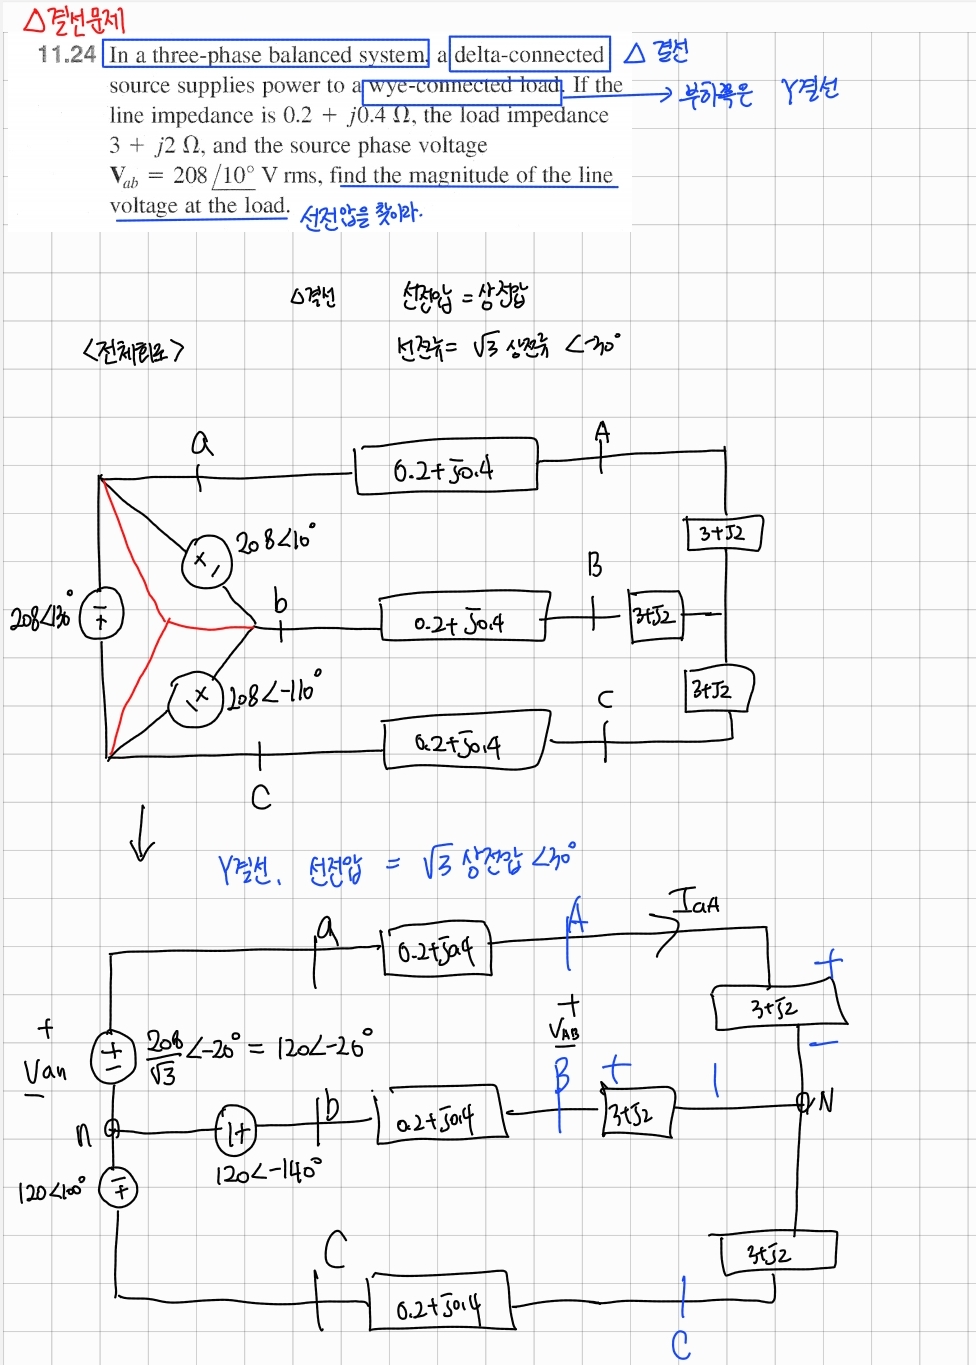 △결선문제
11.24 In a three-phase balanced system, a delta-connected △ 결선
source supplies power to a wye-connected load. If the → 부하쪽은 Y결선
line impedance is 0.2 + j0.4 Ω, the load impedance
3 + j2 Ω, and the source phase voltage
Vab = 208 /10° V rms, find the magnitude of the line
voltage at the load. 선전압을 찾아라.
△결선 선전압 = 상전압
<전체회로> 선전류 = √3 상전류 <-30°
a
0.2+j0.4
A
3+j2
208<10°
208<130°
b
0.2+j0.4
B
3+j2
208<-110°
3+j2
C
0.2+j0.4
C
Y결선. 선전압 = √3 상전압 <30°
a
0.2+j0.4
A
IaA
+
3+j2
-
+
Van
208/√3 <-20° = 120<-20°
+
VAB
n
120<-140°
b
0.2+j0.4
B
+
3+j2
N
120<100°
C
0.2+j0.4
C
3+j2